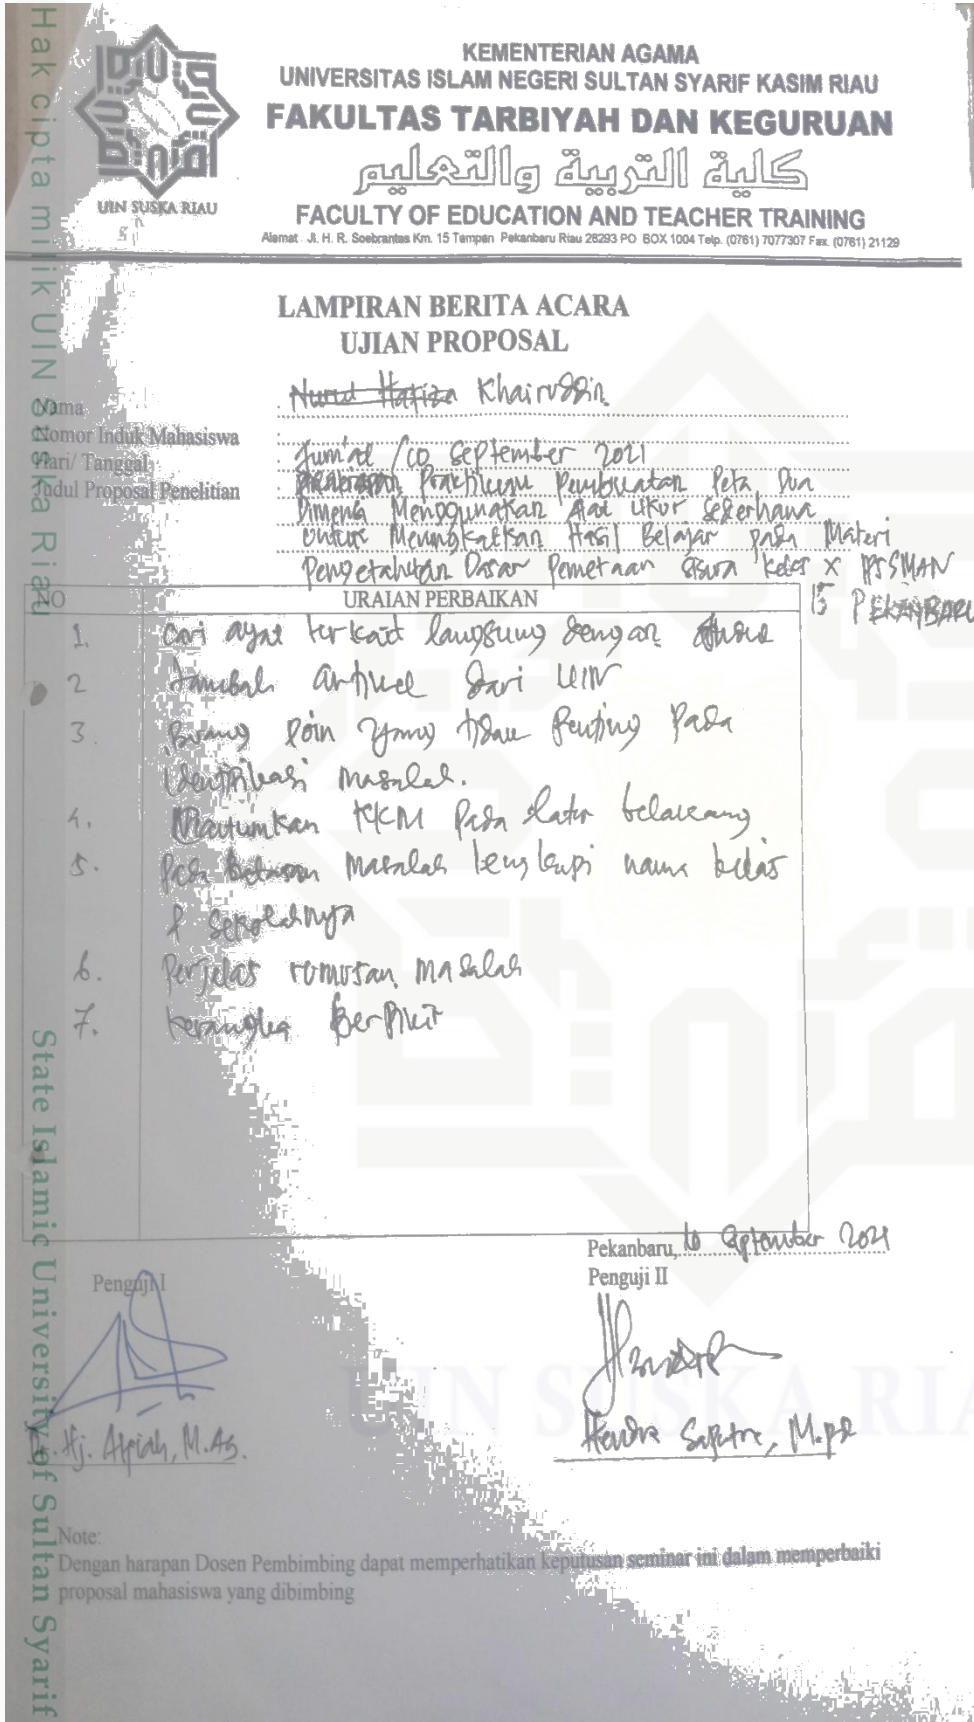 Hak cipta milik UIN Suska Riau
State Islamic University of Sultan Syarif
UIN SUSKA RIAU
KEMENTERIAN AGAMA
UNIVERSITAS ISLAM NEGERI SULTAN SYARIF KASIM RIAU
FAKULTAS TARBIYAH DAN KEGURUAN
كلية التربية والتعليم
FACULTY OF EDUCATION AND TEACHER TRAINING
Alamat : Jl. H. R. Soebrantas Km. 15 Tampan Pekanbaru Riau 28293 PO BOX 1004 Telp. (0761) 7077307 Fax. (0761) 21129
LAMPIRAN BERITA ACARA
UJIAN PROPOSAL
Nama : Khairuddin
Nomor Induk Mahasiswa :
Hari/ Tanggal : Jum'at / 10 September 2021
Judul Proposal Penelitian : Praktikum Pembuatan Peta Dua
Dimensi Menggunakan Alat Ukur Sederhana
Untuk Meningkatkan Hasil Belajar pada Materi
Pengetahuan Dasar Pemetaan Siswa Kelas X SMAN
15 PEKANBARU
NO URAIAN PERBAIKAN
1. Cari ayat terkait langsung dengan
2 Tambah artikel dari UIN
3. Buang Poin yang tidak Penting Pada
identifikasi Masalah.
4. Cantumkan KKM Pada latar belakang
5. Pada Batasan Masalah lengkapi nama kelas
& Sekolahnya
6. Perjelas rumusan Masalah
7. Kerangka Berfikir
Pekanbaru, 10 September 2021
Penguji I
Penguji II
Hj. Afriah, M.Ag.
Hendra Saputra, M.Pd
Note:
Dengan harapan Dosen Pembimbing dapat memperhatikan keputusan seminar ini dalam memperbaiki
proposal mahasiswa yang dibimbing
UIN SUSKA RIA